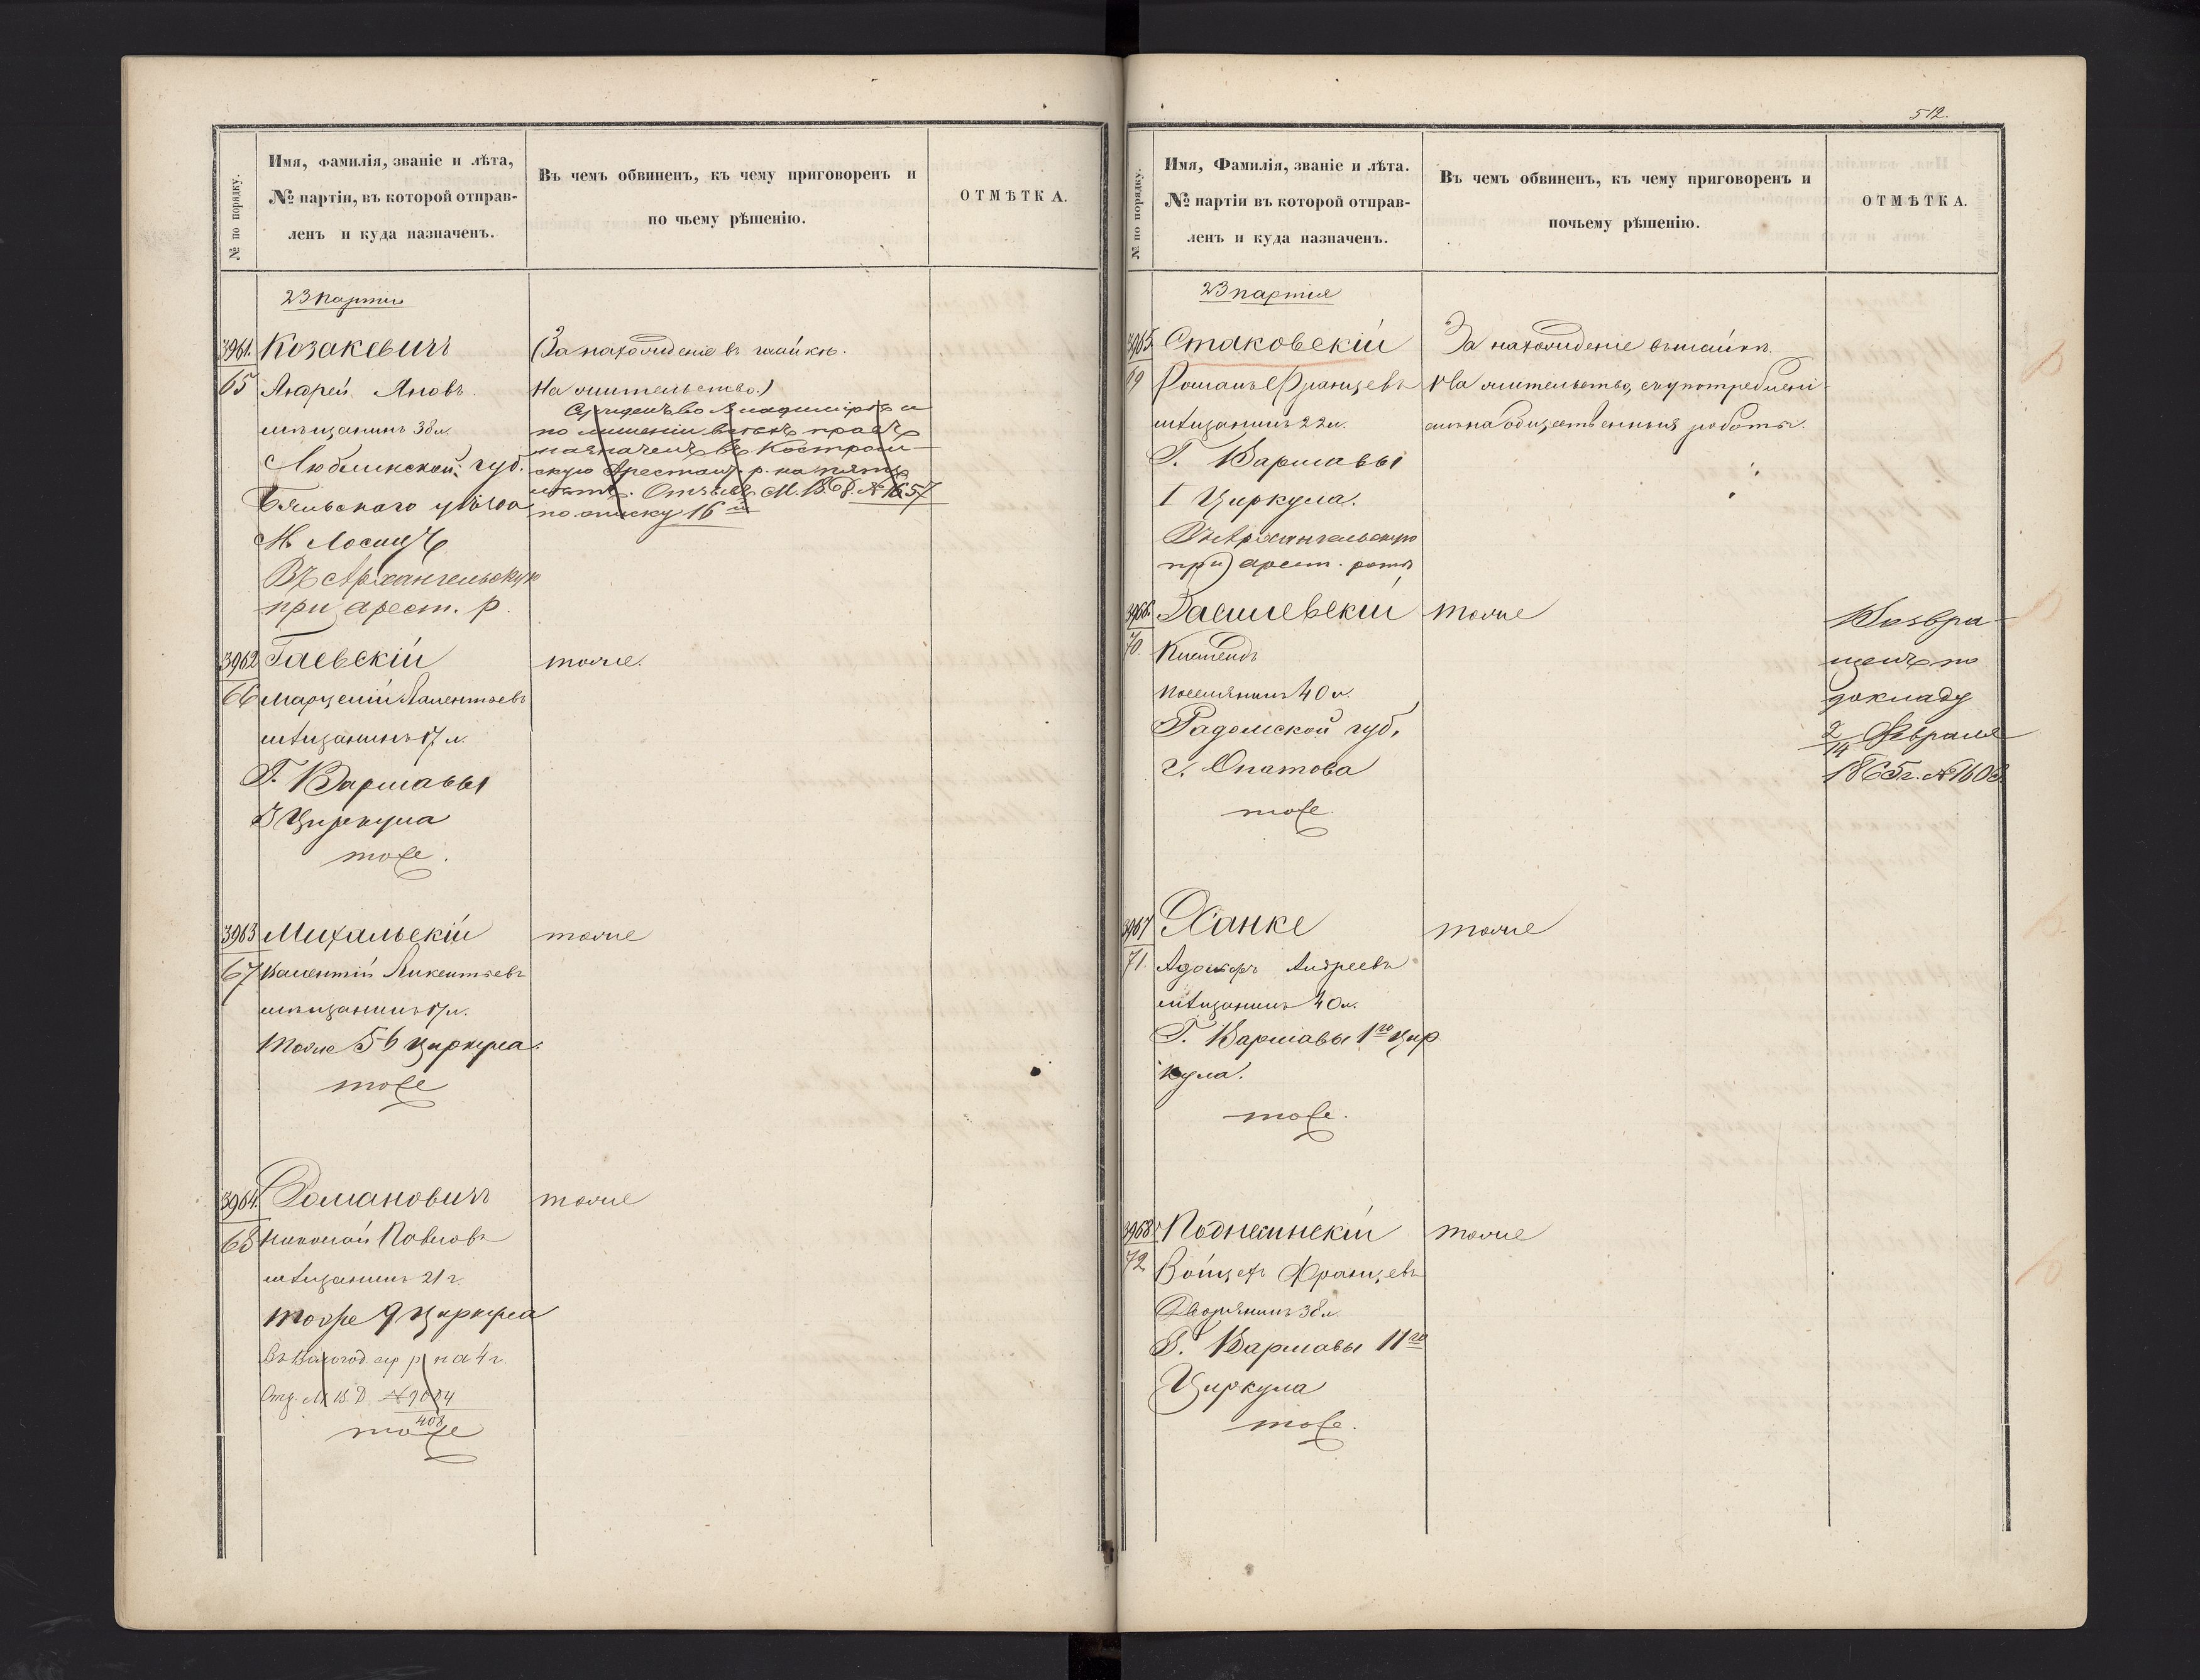 № по порядку.
Имя, фамилія, званіе и лѣта,
№ партіи, въ которой отправ-
ленъ и куда назначенъ.
Въ чемъ обвиненъ, къ чему приговоренъ и
по чьему рѣшенію.
ОТМѢТКА.
23 партія
3961.
65
Козакевичъ
Андрей Яновъ.
мѣщанинъ 38 л.
Люблинской губ.
Бяльскаго уѣзда
М. Лосицъ
Въ Архангельскую
при арест. р.
(За нахожденіе въ шайкѣ.
На жительство.)
Сужденъ во Владимірѣ и
по лишеніи всѣхъ правъ
назначенъ въ Костром-
скую Арестант. р. на пять
лѣтъ. М. В. Д. № 1657
по списку 16й
3962
66
Гаевскій
Марцелій Валентьевъ
мѣщанинъ 17 л.
Г. Варшавы
Циркула
тоже.
тоже.
3963
67
Михальскій
Валентій Викентьевъ
мѣщанинъ 17 л.
тоже 5б циркула.
тоже
тоже
3964.
68
Романовичъ
Николай Павловъ
мѣщанинъ 21 г.
тоже 9 циркула
Въ Вологод. ар. р. на 4 г.
Отз. М. В. Д. № 9084
408
тоже
тоже
512.
№ по порядку.
Имя, Фамилія, званіе и лѣта.
№ партіи въ которой отправ-
ленъ и куда назначенъ.
Въ чемъ обвиненъ, къ чему приговоренъ и
почьему рѣшенію.
ОТМѢТКА.
23 партія
3965
69
Стаковскій
Романъ Францевъ
мѣщанинъ 22 л.
Г. Варшавы
I Циркула.
Въ Архангельскую
при арест. роты
За нахожденіе въ шайкѣ.
На жительство, съ употреблені-
емъ на общественныя работы.
3966.
70.
Клеменсъ
поселянинъ 40 л.
Радомской губ.
г. Опатова
тоже.
тоже
Возвра-
щенъ по
докладу
2/14 Февраля
1865 г. № 1608.
3967
71.
Ханке
Адольфъ Андреевъ
мѣщанинъ 40 л.
Г. Варшавы 1го Цир
кула.
тоже.
тоже
3968
72
Войцехъ Францевъ
Дворянинъ 38 л.
Г. Варшавы 11го
Циркула
тоже.
тоже